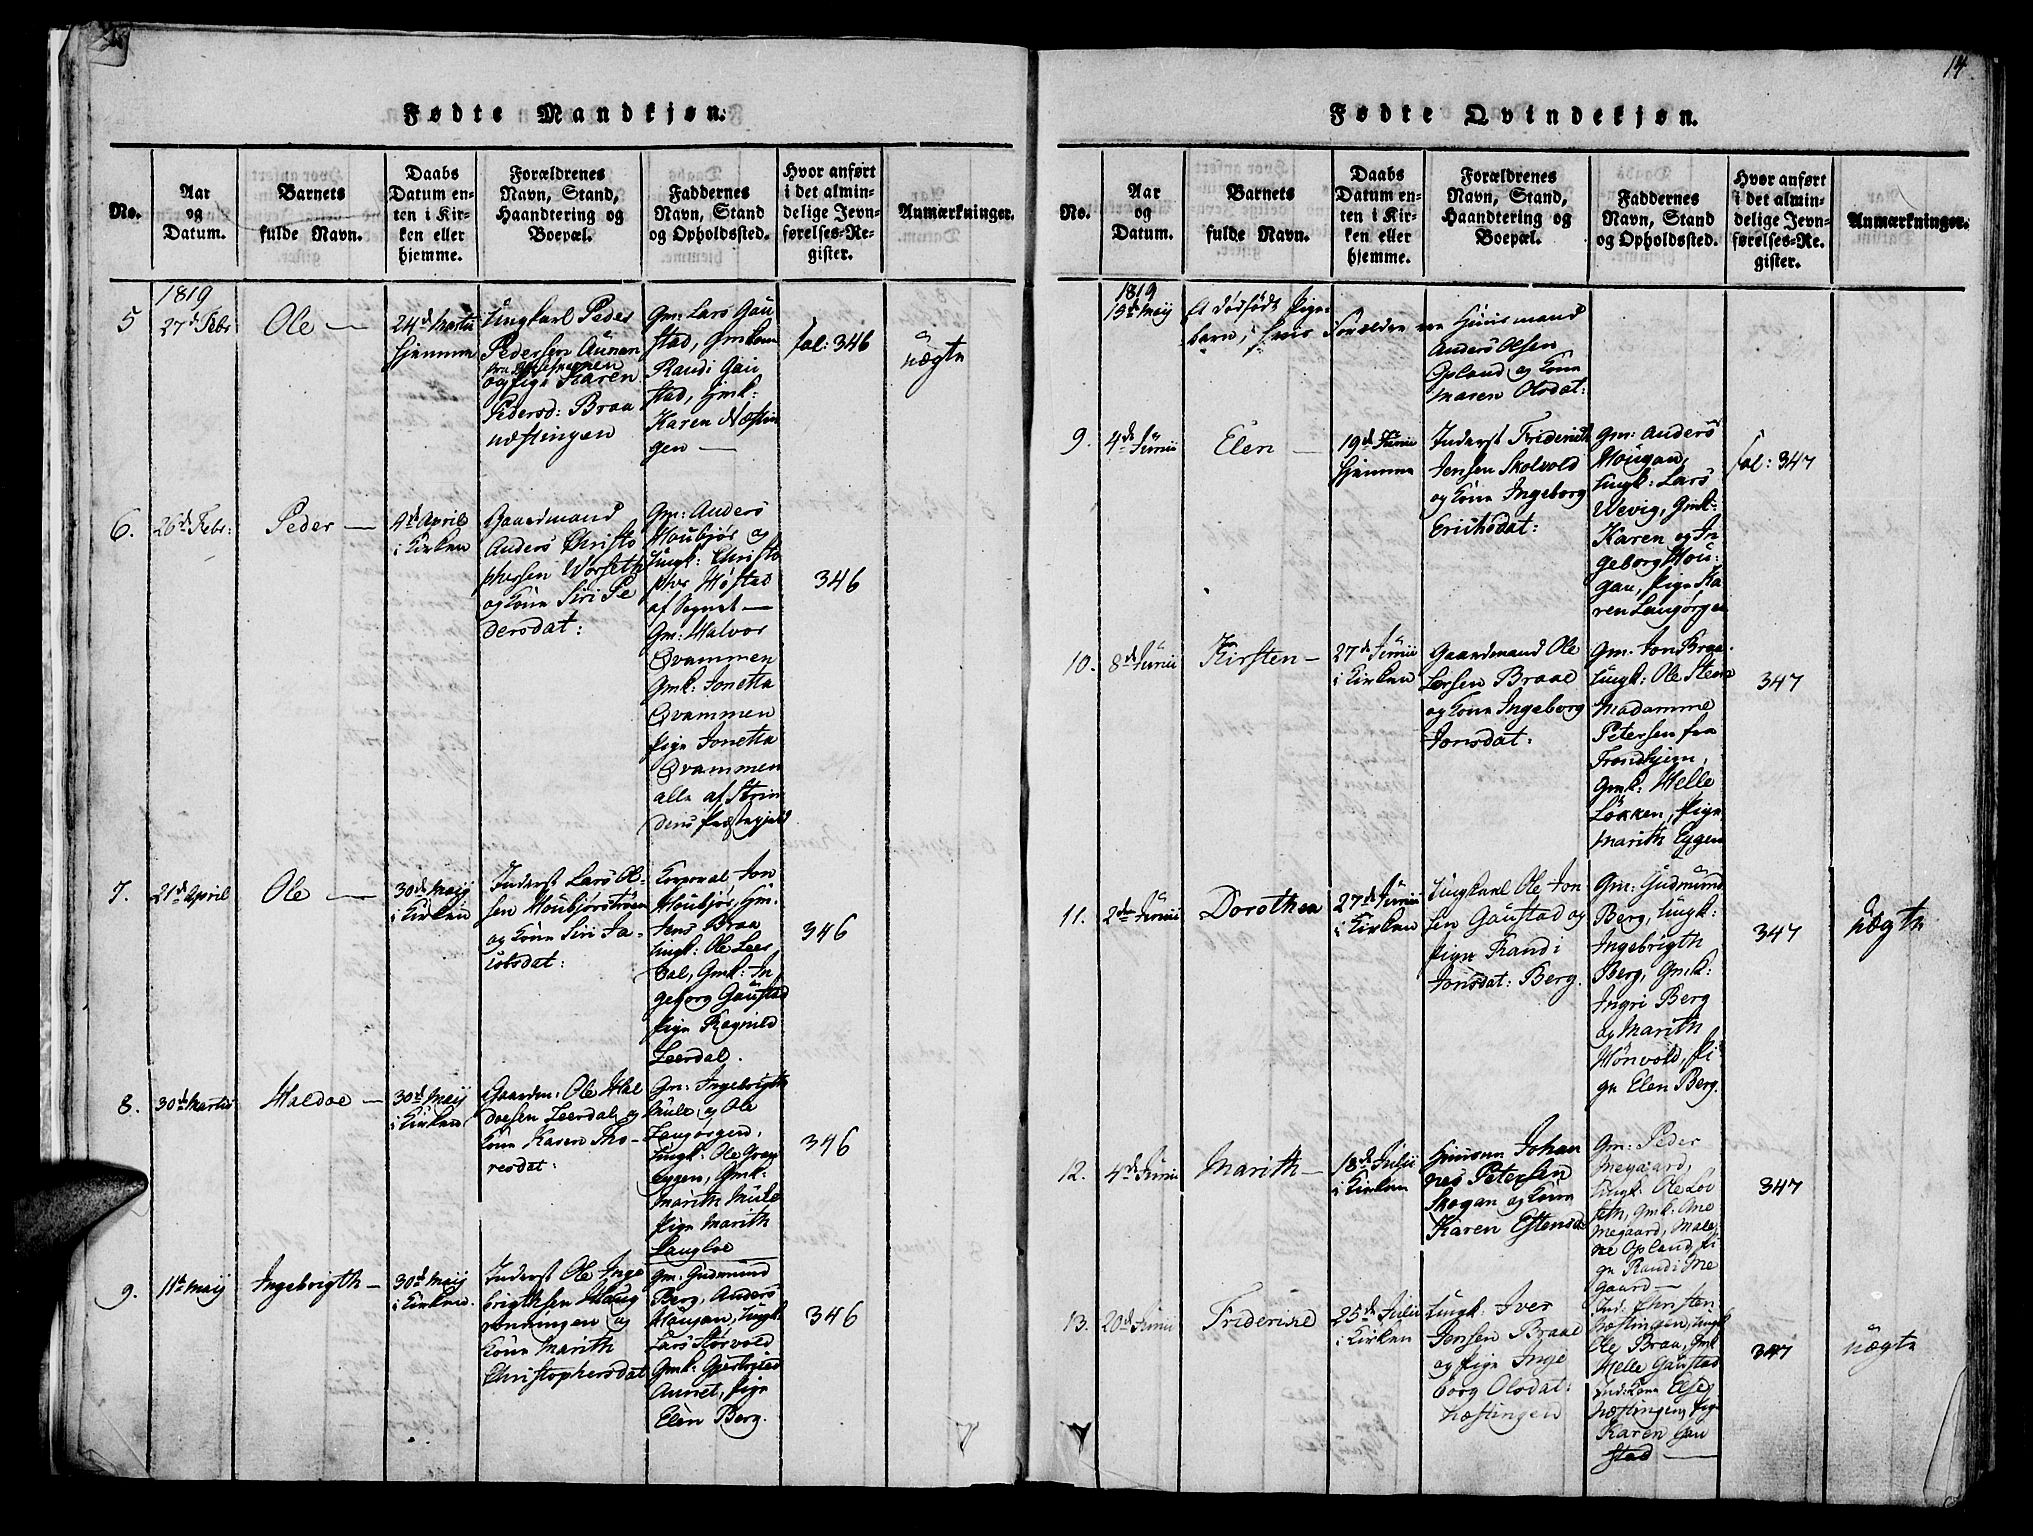 14
Fødte Mandkjøn.
No.
Aar
og
Datum.
Barnets
fulde Navn.
Daabs
Datum en-
ten i Kir-
ken eller
hjemme.
Forældrenes
Navn, Stand,
Haandtering og
Boepæl.
Faddernes
Navn, Stand
og Opholdssted.
Hvor anført
i det almin-
delige Jevn-
førelses-Re-
gister.
Anmærkninger.
1819
5
27de Febr
Ole
24de Martii
hjemme
Ungkarl Peder
Pedersen Aunan
og Pige Karen
Pedersd: Braa
næstingen
Gm: Lars Gau
stad, Gmkone
Randi Gau
stad, Gmk:
Karen Næstin
gen
fol: 346
uægte
6.
26de Febr:
Peder
4de April
i Kirken
Gaardmand
Anders Christo
phersen Worseth
og Kone Siri Pe
dersdat:
Gm: Anders
Houbjør og
Ungk: Christo
pher Høstad
af Sognet
Gm: Halvor
Qvammen
Gmk: Jonetta
Qvammen
Pige Jonetta
Qvammen
alle af Strin
dens Præstegjeld
346
7.
21de April
Ole
30de Maij
i Kirken
Inderst Lars Ol-
sen Houbjørstrøen
og Kone Siri Ja-
cobsdat:
Korporal Jon
Houbjør, Gm:
Jens Braa
Ungk: Ole Leer
dal, Gmk: In
geborg Gaustad
Pige Ragnild
Leerdal.
346
8.
30de Martii
Haldoe
30de Maij
i Kirken
Gaardm: Ole Hal
doesen Leerdal og
Kone Karen Tho-
resdat:
Gm: Ingebrigth
Mule, og Ole
Langørgen,
Ungk: Ole Graa
eggen, Gmk:
Marith Mule
Pige Marith
Langloe
346
9.
11te Maij
Ingebrigth
30de Maij
i Kirken
Inderst Ole Inge
brigthsen Haug
rønningen og
Kone Marith
Christophersdat
Gm: Gudmund
Berg, Anders
Hougan, Ungk:
Lars Størvold
Gmk: Gjertrud
Aunet, Pige
Elen Berg.
346
Fødte Qvindekjøn.
No.
Aar
og
Datum.
Barnets
fulde Navn.
Daabs
Datum en-
ten i Kir-
ken eller
hjemme.
Forældrenes
Navn, Stand,
Haandtering og
Boepæl.
Faddernes
Navn, Stand
og Opholdssted.
Hvor anført
i det almin-
delige Jevn-
førelses-Re-
gister.
Anmærkninger.
1819
13de Maij
Et dødfødt Pige-
barn, hvis Forældre ere Huusmand
Anders Olsen
Opland og Kone
Maren Olsdat:
9.
4de Junii
Elen
19de Junii
hjemme
Inderst Friderich
Jensen Skolvold
og Kone Ingeborg
Erichsdat:
Gm: Anders
Hougan,
Ungk: Lars
Wevig, Gmk:
Karen og In
geborg Hou-
gan, Pige Ka
ren Langørgen
fol: 347
10.
8de Junii
Kirsten
27de Junii
i Kirken
Gaardmand Ole
Larsen Braae
og Kone Ingeborg
Jonsdat:
Gm: Jon Braa
Ungk: Ole Steen
Madamme
Petersen fra
Trondhjem,
Gmk: Helle
Løkken, Pige
Marith Eggen
347
11.
2den Junii
Dorothea
27de Junii
i Kirken
Ungkarl Ole Jon
sen Gaustad og
Pige Randi
Jonsdat: Berg.
Gm: Gudmund
Berg, Ungk:
Ingebrigth
Berg, Gmk:
Ingri Berg
og Marith
Hønvold, Pi-
ge Elen Berg.
347
uægte
12.
4de Junii
Marith
18de Julii
i Kirken
Huusm Johan
nes Petersen
Skogan og Kone
Karen Estensd:
Gm: Peder
Megaard,
Ungk: Ole Lov
seth, Gmk: Ane
Megaard, Male
ne Opland, Pi
ge Randi Me
gaard
347
13.
20de Junii
Friderice
25de Julii
i Kirken
Ungk: Iver
Jensen Braae
og Pige Inge
borg Olsdat:
Næstingen
Ind: Christen
Næstingen, Ungk
Ole Braa, Gmk
Helle Gaustad
Ind: Kone Else
Næstingen, Pige
Karen Gau
stad
347
uægte